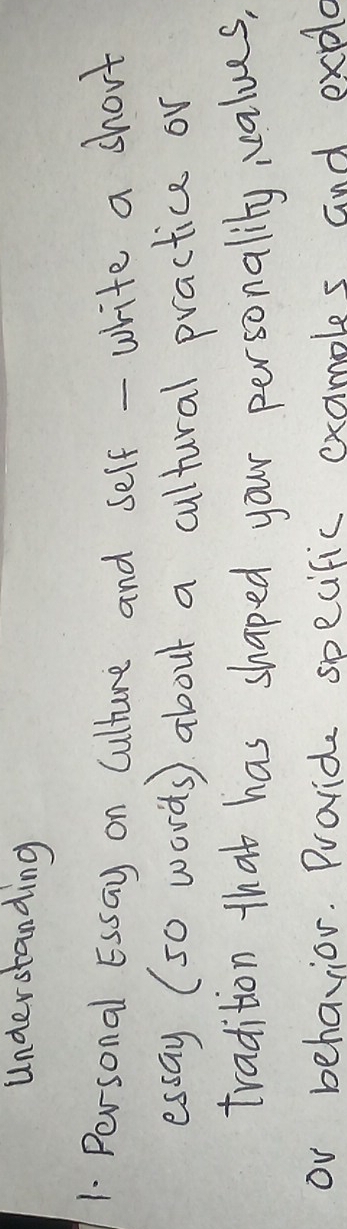 Understanding
1. Personal Essay on Culture and self - write a short
essay (50 words) about a cultural practice or
tradition that has shaped your personality, values,
or behavior. Provide specific examples and explo